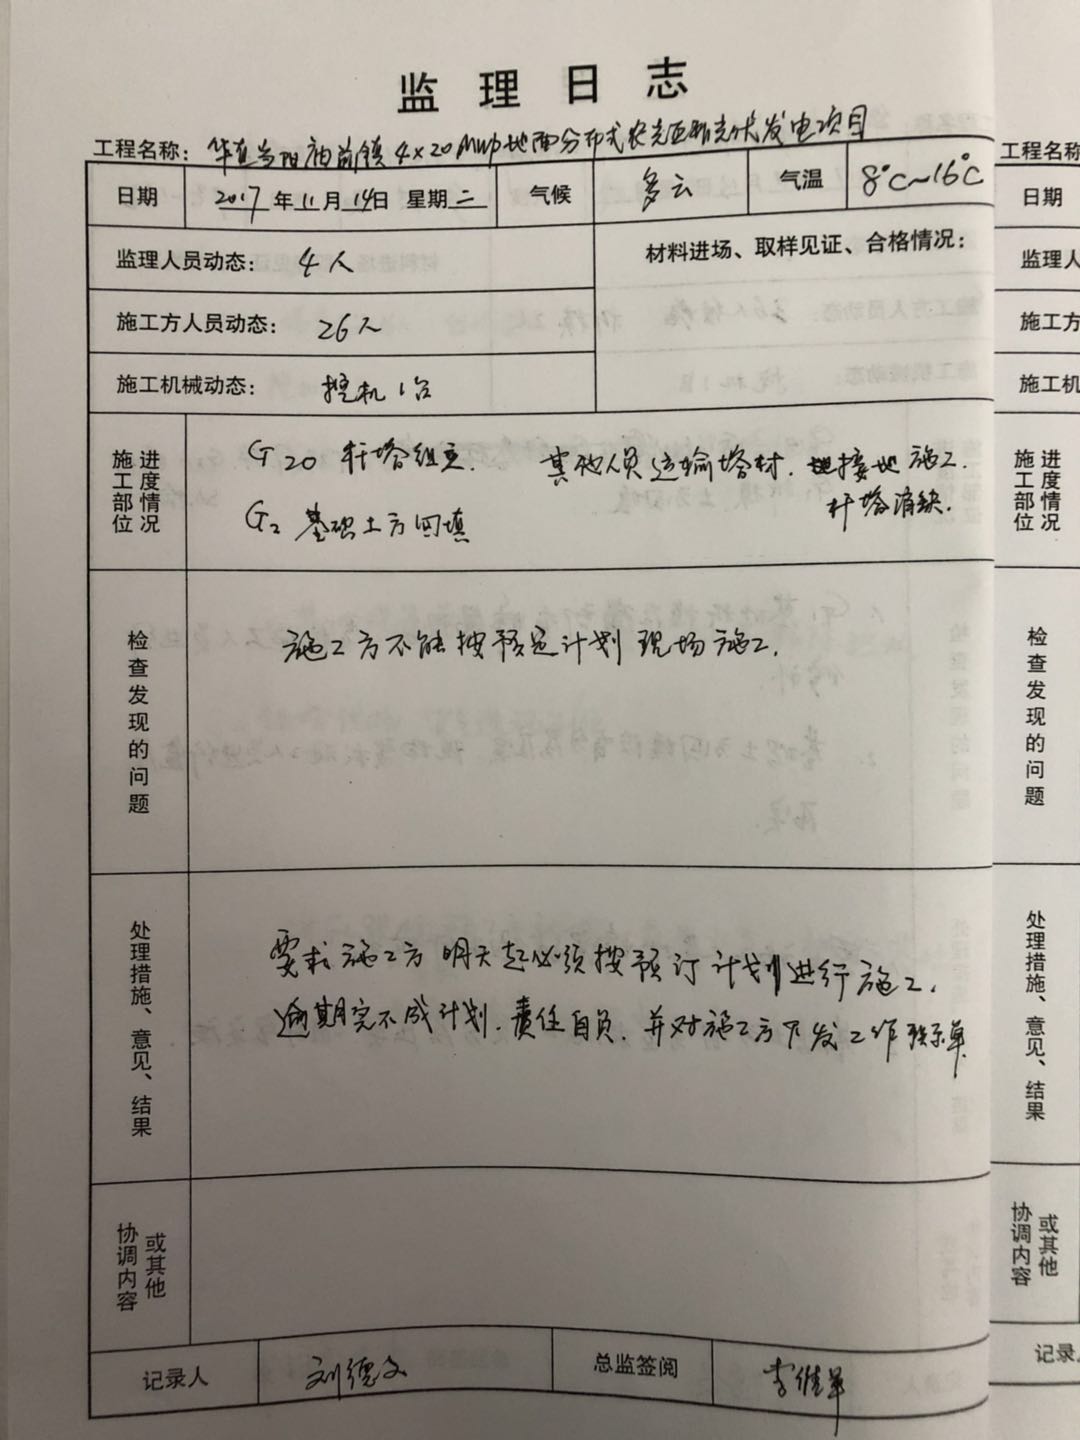 监理日志
工程名称: 华直当阳庙前镇4×20MWp地面分布式农光互补光伏发电项目
工程名称
日期 2017年11月14日 星期二 气候 多云 气温 8℃~16℃
日期
监理人员动态: 4人 材料进场、取样见证、合格情况:
监理人
施工方人员动态: 26人
施工方
施工机械动态: 挖机1台
施工机
施工部位 进度情况
G20 杆塔组立. 其他人员运输塔材. 接地施工.
杆塔消缺.
G2 基础土方回填
施工部位 进度情况
检查发现的问题
施工方不能按预定计划现场施工.
检查发现的问题
处理措施、意见、结果
要求施工方明天起必须按预订计划进行施工,
逾期完不成计划.责任自负.并对施工方下发工作联系单
处理措施、意见、结果
协调内容 或其他
协调内容 或其他
记录人 刘德文 总监签阅 李维军
记录人